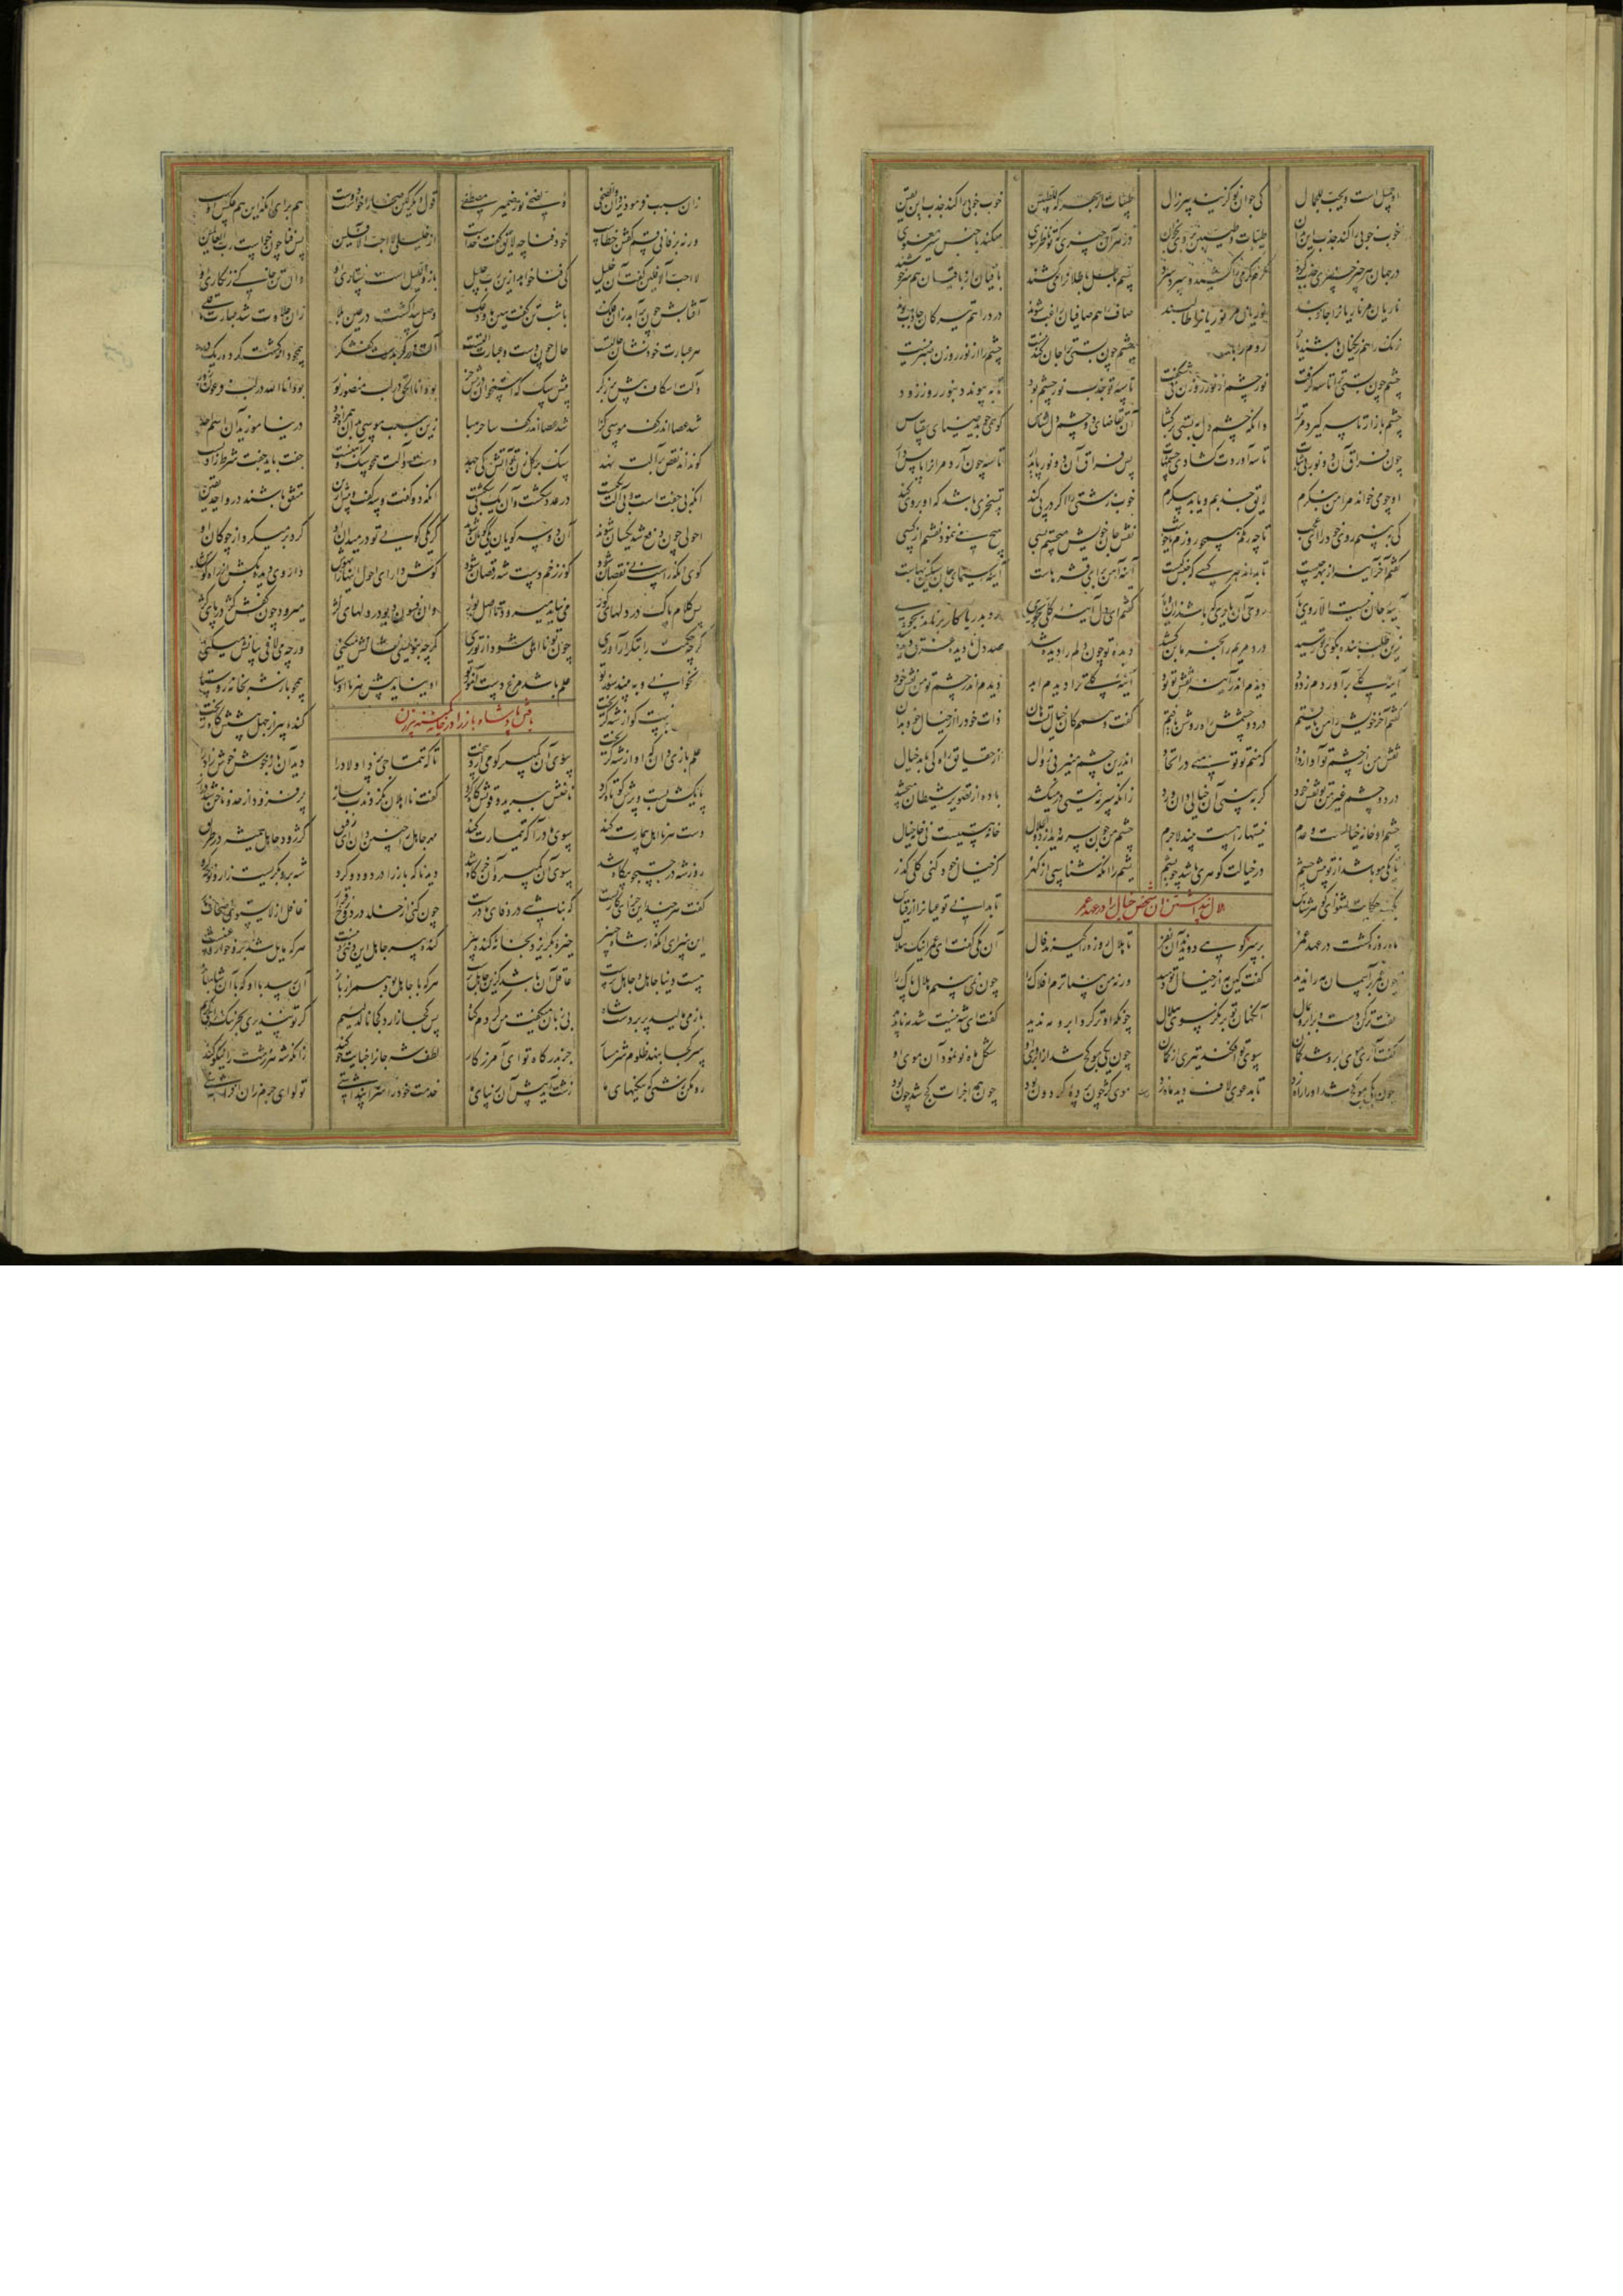 او جمیل است و یحب للجمال کی جوان نو گزیند پیر زال طیبات از بهر که للطیبین خوب خوبی را کند جذب این یقین
خوب خوبی را کند جذب این بدان طیبات و طیبین بر وی بخوان در هر آن چیزی که تو ناظر شوی میکند با جنس سیر معنوی
در جهان هر چیز چیزی جذب کرد گرم گرمی را کشید و سرد سرد قسم باطل باطلانرا می کشند باقیان از باقیان هم سرخوشند
ناریان مر ناریانرا جاذبند نوریان مر نوریانرا طالبند صاف را هم صافیان راغب شوند درد را هم تیرگان جاذب بوند
زنگ را هم زنگیان باشند یار روم را با چشم چون بستی ترا جان کندنیست چشم را از نور روزن صبر نیست
چشم چون بستی ترا تاسه گرفت نور چشم از نور روزن کی شکفت تاسه تو جذب نور چشم بود تا به پیوندد بنور روز زود
چشم باز ار تاسه گیرد مر ترا دانکه چشم دل ببستی بر گشا آن تقاضای دو چشم دل شناس کو همی جوید ضیای بی قیاس
چون فراق آن دو نور بی ثبات تاسه آوردت گشادی چشمهات پس فراق آن دو نور پایدار تاسه چون آرد مر انرا پاس دار
او چو می خواند مرا من بنگرم لایق جذبم و یا بد پیکرم خوب زشتی را اگر در پی کند تسخری باشد که او بر وی کند
کی ببینم روی خود را ای عجب تا چه رنگم همچو روزم یا چو شب نقش جان خویش می جستم بسی هیچ می ننمود نقشم از کسی
گفتم آخر آینه از بهر چیست تا بداند هر کسی کو جنس کیست آینه آهن برای قشرهاست آینه سیمای جان سنگین بهاست
آینه جان نیست الا روی یار روی آن یاری که باشد زان دیار گفتم ای دل آینه کلی بجوی رو بدریا کار بر ناید بجوی
زین طلب بنده بکوی تو رسید درد مریم را بخرمابن کشید دیده تو چون دلم را دیده شد صد دل نادیده غرق دیده شد
آینه کلی برآوردم ز دود دیدم اندر آینه نقش تو بود آینه کلی ترا دیدم ابد دیدم اندر چشم تو من نقش خود
گفتم آخر خویش را من یافتم در دو چشمش راه روشن یافتم گفت وهمم کان خیال تست هان ذات خود را از خیال خود بدان
نقش من از چشم تو آواز داد که منم تو تو منی در اتحاد اندرین چشم منیر بی زوال از حقایق راه کی یابد خیال
در دو چشم غیر من تو نقش خود گر ببینی آن خیالی دان و رد زانکه سرمه نیستی در میکشد باده از تصویر شیطان میچشد
چشم او خانه خیالست و عدم نیستها را هست بیند لاجرم چشم من چون سرمه دید از ذوالجلال خانه هستیست نی خانه خیال
تا یکی مو باشد از تو پیش چشم در خیالت گوهری باشد چو یشم یشم را آنگه شناسی از گهر کز خیال خود کنی کلی گذر
یک حکایت بشنو ای گوهر شناس تا بدانی تو عیانرا از قیاس
هلال پنداشتن آن شخص خیال را در عهد عمر
ماه روزه گشت در عهد عمر بر سر کوهی دویدند آن نفر تا هلال روزه را گیرند فال آن یکی گفت ای عمر اینک هلال
چون عمر بر آسمان مه را ندید گفت کین مه از خیال تو دمید ورنه من بیناترم افلاک را چون نمی بینم هلال پاک را
گفت تر کن دست و بر ابرو بمال آنگهان تو بر نگر سوی هلال چونکه او تر کرد ابرو مه ندید گفت ای شه نیست مه شد ناپدید
گفت آری موی ابرو شد کمان سوی تو افکند تیری از گمان چون یکی مو کج شد از ابروی او شکل ماه نو نمود آن موی او
چون یکی مو کج شد او را راه زد تا بدعوی لاف دید ماه زد موی کژ چون پرده گردون بود چون همه اجزات کج شد چون بود
زان سبب فرمود یزدان والضحی والضحی نور ضمیر مصطفی قول دیگر کین ضحی را خواست دوست هم برای آنکه این هم عکس اوست
ورنه بر فانی قسم گفتن خطاست خود فنا چه لایق گفت خداست از خلیلی لا احب الافلین پس فنا چون خواست رب العالمین
لا احب الافلین گفت آن خلیل کی فنا خواهد ازین رب جلیل باز واللیل است ستاری او وان تن خاکی زنگاری او
آفتابش چون برآمد زان فلک با شب تن گفت هین ما ودعک وصل پیدا گشت در عین بلا زان حلاوت شد عبارت ما قلی
هر عبارت خود نشان حالتیست حال چون دست و عبارت آلتیست آلت زرگر بدست کفشگر همچو دانه کشت کرده ریگ در
و آلت اسکاف پیش برزگر پیش سگ که استخوان در پیش خر بود انا الحق در لب منصور نور بود انا الله در لب فرعون زور
شد عصا اندر کف موسی گوا شد عصا اندر کف ساحر هبا زین سبب موسی بدان همراه خود در نیاموزید آن اسم احد
کو نداند نقص بر آلت نهد سنگ بر گل زن تو آتش کی جهد دست و آلت همچو سنگ و آهنست جفت باید جفت شرط زادنست
آنکه بی جفت است و بی آلت یکیست در عدد شکست و آن یک بی شکیست آنکه دو گفت و سه گفت و بیش ازین متفق باشند در واحد یقین
احولی چون دفع شد یکسان شوند آن دو سه گویان یکی گویان شوند گر یکی گویی تو در میدان او گرد بر میگرد از چوگان او
گوی آنگه راست بی نقصان شود کو ز زخم دست شه رقصان شود گوش دار ای احول اینها را بهوش داروی دیده بکش از راه گوش
پس کلام پاک در دلهای کور می نپاید میرود تا اصل نور وان فسون دیو در دلهای کژ میرود چون کفش کژ در پای کژ
گرچه حکمت را بتکرار آوری چون تو نااهلی شود از تو بری گرچه بنویسی نشانش میکنی ورچه می لافی بیانش میکنی
نخوانی و ببیند سوز تو علم باشد مرغ دست آموز تو او نپاید پیش هر نااوستا همچو باز شه بخانه روستا
یافتن پادشاه باز را در خانه پیر زن
علم بازی دان کو از شه گریخت سوی آن کمپیر کو می آرد بیخت تا که تتماجی پزد اولاد را دید آن باز خوش خوش زاد را
پایکش بست و پرش کوتاه کرد ناخنش ببرید و قوتش کاه کرد گفت نااهلان نکردندت بساز پر فزود از حد و ناخن شد دراز
دست هر نااهل بیمارت کند سوی مادر آ که تیمارت کند مهر جاهل را چنین دان ای رفیق کژ رود جاهل همیشه در طریق
روز شه در جستجو بیگاه شد سوی آن کمپیر و آن خرگاه شد دید ناگه باز را در دود و گرد شه برو بگریست زار و نوحه کرد
گفت هر چند این جزای کار تست که نباشی در وفای ما درست چون کنی از خلد در دوزخ قرار غافل از لا یستوی اصحاب نار
این سزای آنکه از شاه خبیر خیره بگریزد بخانه گنده پیر گنده پیر جاهل این دنیی دنیست هر که مایل شد بدو خوار و غبیست
هست دنیا جاهل و جاهل پرست عاقل آن باشد کزین جاهل برست هر که با جاهل بود همراز باز آن رسد با او که با آن شاهباز
باز می مالید پر بر دست شاه بی زبان میگفت من کردم گناه پس کجا زارد کجا نالد لئیم گر تو نپذیری بجز نیک ای کریم
سر کجا بنهد ظلوم شرمسار جز بدرگاه تو ای آمرزگار لطف شه جانرا جنایت جو کند زانکه شه هر زشت را نیکو کند
رو مکن زشتی که نیکیهای ما زشت آید پیش آن زیبای ما خدمت خود را سزا پنداشتی تو لوای جرم از ان افراشتی